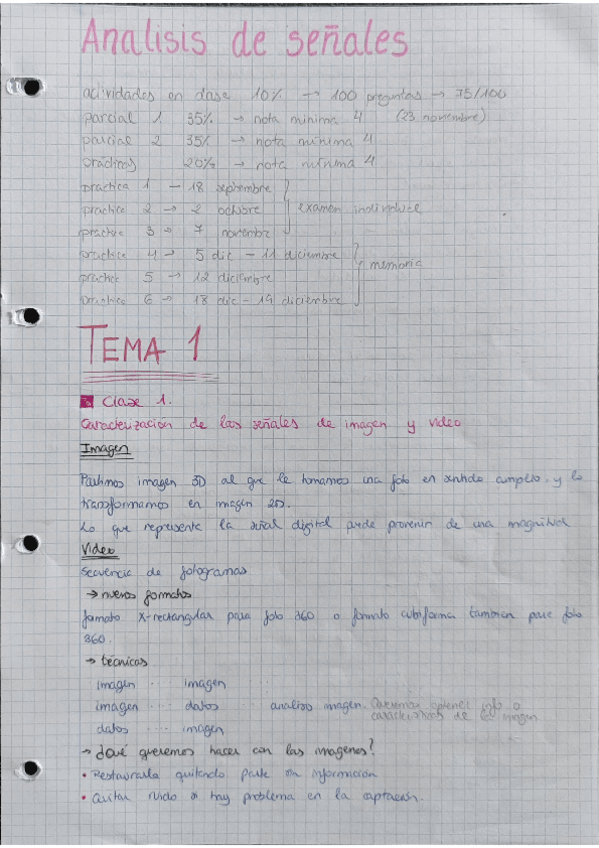 Analisis de señales
actividades en clase 10% → 100 preguntas → 75/100
parcial 1 35% → nota minima 4 (23 noviembre)
parcial 2 35% → nota minima 4
prácticas 20% → nota minima 4
practica 1 → 18 septiembre
practica 2 → 2 octubre examen individual
practica 3 → 7 noviembre
practica 4 → 5 dic - 11 diciembre
practica 5 → 12 diciembre memoria
practica 6 → 18 dic - 19 diciembre
TEMA 1
Clase 1.
Caracterización de las señales de imagen y video
Imagen
Partimos imagen 3D al que le tomamos una foto en sentido amplio. y lo
transformamos en imagen 2D.
Lo que representa la señal digital puede provenir de una magnitud
Video
Secuencia de fotogramas
→ nuevos formatos
formato X-rectangular para foto 360 o formato cubiforma tambien para foto
360.
→ técnicas
imagen ... imagen
imagen ... datos ... analisis imagen. Queremos obtener info o
caracteristicas de la imagen
datos ... imagen
→ ¿Qué queremos hacer con las imagenes?
• Restaurarla quitando parte sin información
• Quitar ruido si hay problema en la captación.